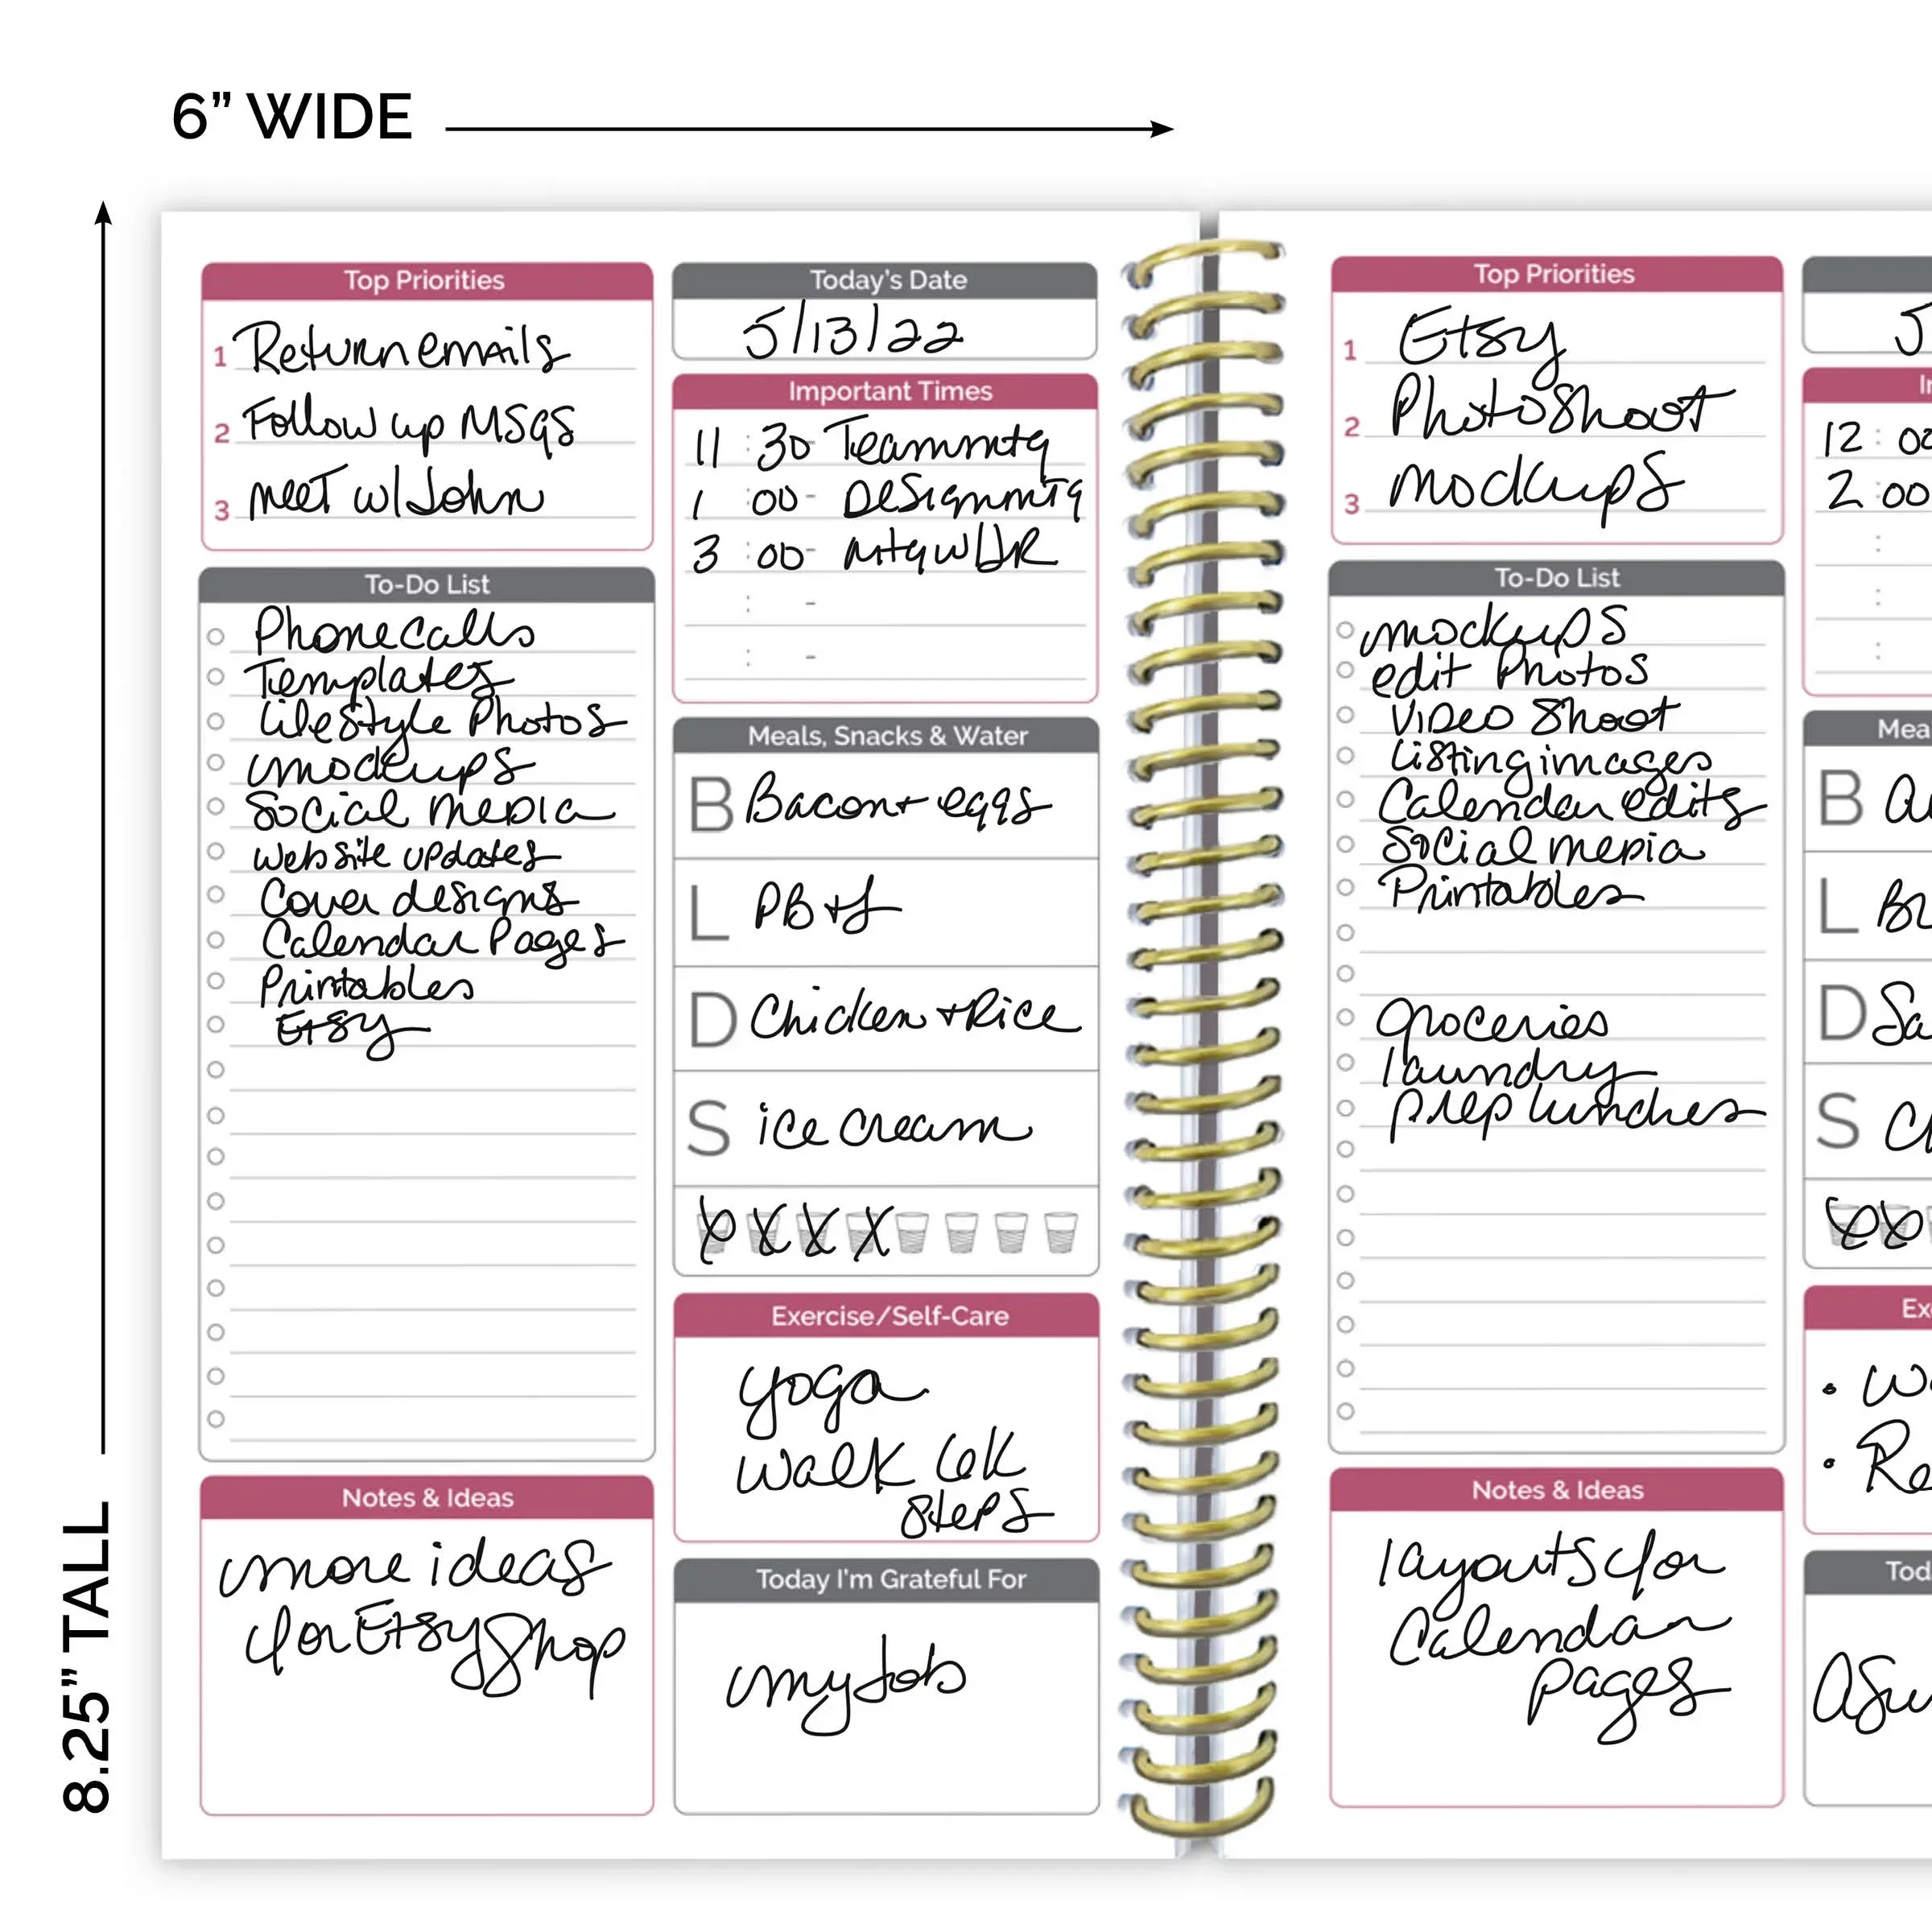 6” WIDE
8.25” TALL
Top Priorities
1 Return emails
2 Follow up MSgs
3 meet w/John
To-Do List
Phone calls
Templates
Lifestyle Photos
mockups
Social media
website updates
Cover designs
Calendar Pages
Printables
Etsy
Notes & Ideas
more ideas
for Etsy Shop
Today's Date
5/13/22
Important Times
11 : 30 - Team mtg
1 : 00 - Design mtg
3 : 00 - mtg w/HR
: -
: -
Meals, Snacks & Water
B Bacon + eggs
L PB + J
D Chicken + Rice
S ice cream
Exercise/Self-Care
yoga
walk 6k
steps
Today I'm Grateful For
my Job
Top Priorities
1 Etsy
2 Photoshoot
3 mockups
To-Do List
mockups
edit Photos
Video Shoot
listing images
Calendar edits
Social media
Printables
groceries
laundry
prep lunches
Notes & Ideas
layouts for
Calendar
pages
5
12 : 00
2 : 00
:
:
:
B
L
D
S